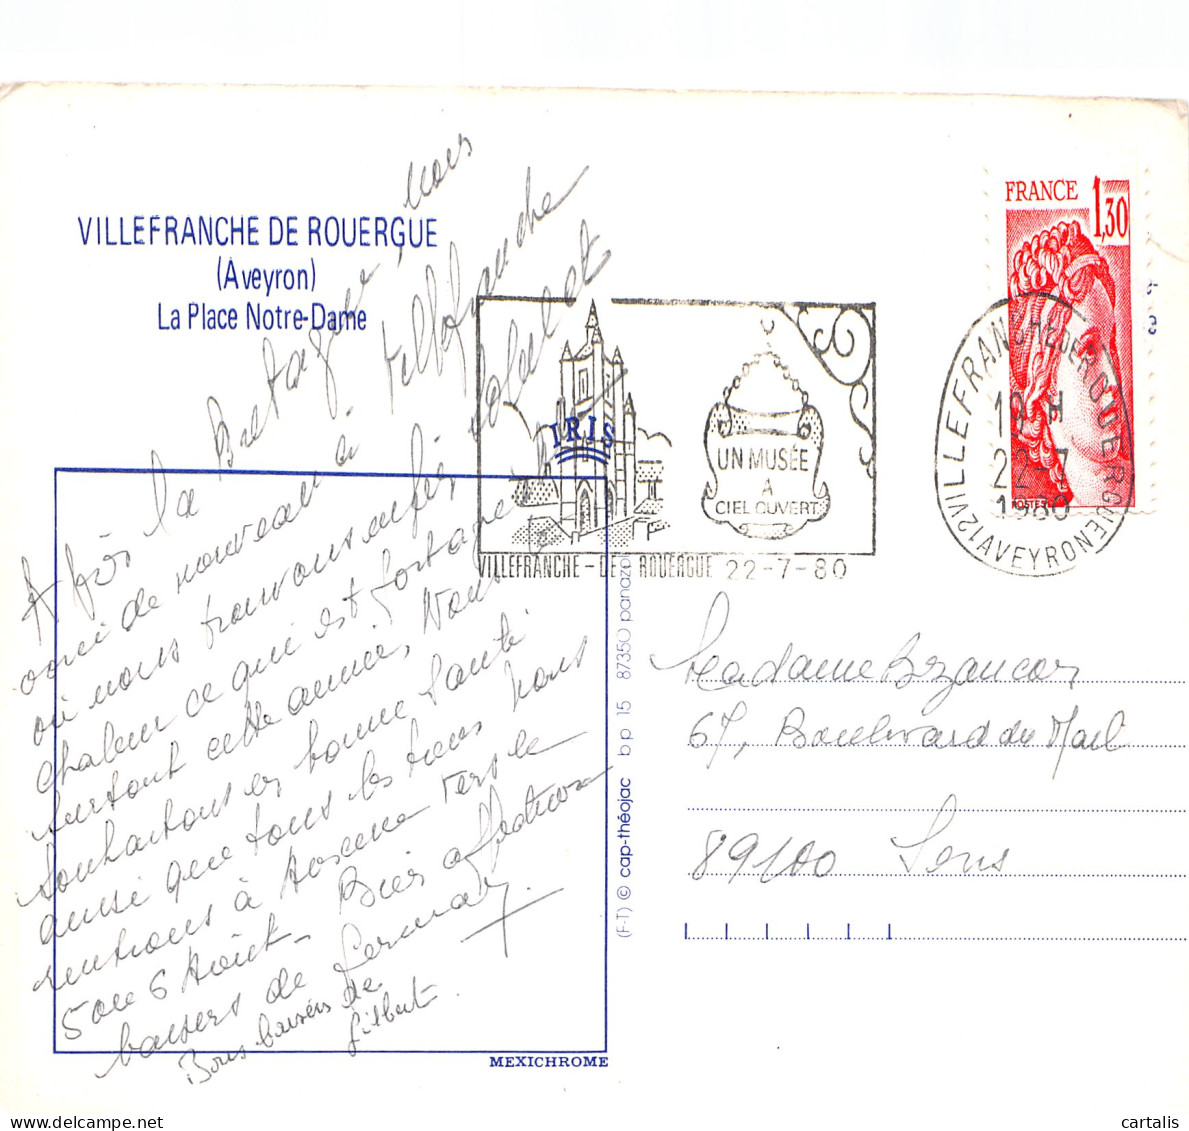 VILLEFRANCHE DE ROUERGUE
(Aveyron)
La Place Notre-Dame
Après la Bretagne, nous
voici de nouveau à Villefranche
où nous trouvons enfin soleil et
chaleur ce qui est fort agréable
surtout cette année. Nous te
souhaitons en bonne santé
ainsi que tous les tiens. Nous
rentrons à Auxerre vers le
5 ou 6 Août. Bien affectueux
baisers de
Bons baisers de
Gilbert.
MEXICHROME
IRIS
UN MUSÉE
A
CIEL OUVERT
VILLEFRANCHE-DE-ROUERGUE 22-7-80
FRANCE 1,30
POSTES
VILLEFRANCHE DE ROUERGUE
12 AVEYRON
19 H
22-7
1980
(F-T) © cap-théojac bp 15 87350 panazol
Madame Bezancon
67, Boulevard du Mail
89100 Sens
cartalis